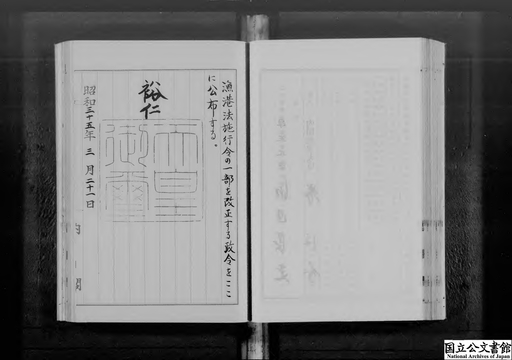 漁港法施行令の一部を改正する政令をここ
に公布する。
裕仁
天皇
御璽
昭和三十五年三月二十一日
内閣
国立公文書館
National Archives of Japan